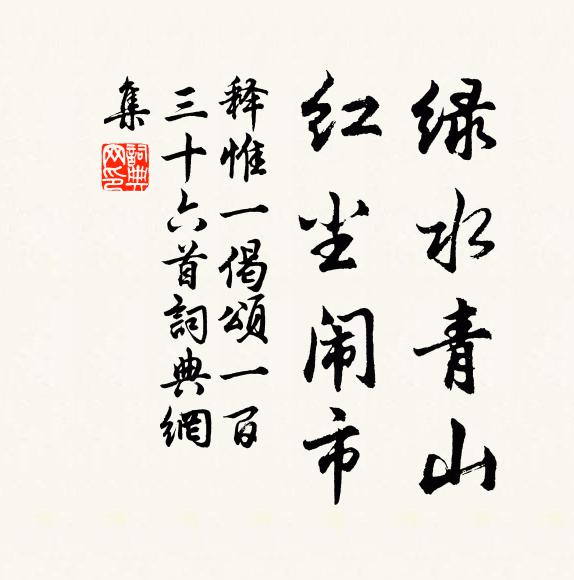 绿水青山
红尘闹市
释惟一偈頌一百
三十六首詞典網
集
詞典
网印